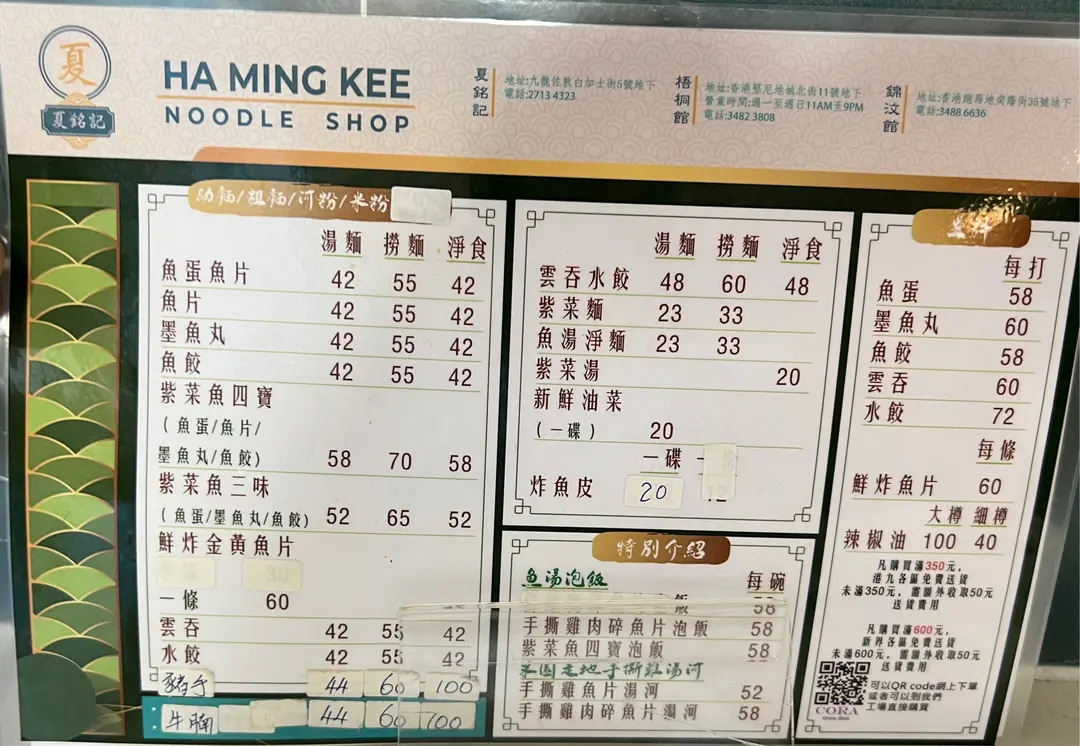 夏
夏銘記
HA MING KEE
NOODLE SHOP
夏銘記
地址:九龍佐敦白加士街5號地下
電話:2713 4323
梧桐館
地址:香港堅尼地城北街11號地下
營業時間:週一至週日11AM至9PM
電話:3482 3808
錦汶館
地址:香港跑馬地奕蔭街35號地下
電話:3488 6636
幼麵/粗麵/河粉/米粉
湯麵 撈麵 淨食
魚蛋魚片 42 55 42
魚片 42 55 42
墨魚丸 42 55 42
魚餃 42 55 42
紫菜魚四寶
(魚蛋/魚片/
墨魚丸/魚餃) 58 70 58
紫菜魚三味
(魚蛋/墨魚丸/魚餃) 52 65 52
鮮炸金黃魚片
30
一條 60
雲吞 42 55 42
水餃 42 55 42
豬手 44 60 100
牛腩 44 60 100
湯麵 撈麵 淨食
雲吞水餃 48 60 48
紫菜麵 23 33
魚湯淨麵 23 33
紫菜湯 20
新鮮油菜
(一碟) 20
一碟
炸魚皮 20 12
特別介紹
魚湯泡飯 每碗
飯 58
手撕雞肉碎魚片泡飯 58
紫菜魚四寶泡飯 58
菜園走地手撕雞湯河
手撕雞魚片湯河 52
手撕雞肉碎魚片湯河 58
每打
魚蛋 58
墨魚丸 60
魚餃 58
雲吞 60
水餃 72
每條
鮮炸魚片 60
大樽 細樽
辣椒油 100 40
凡購買滿350元,
港九各區免費送貨
未滿350元,需額外收取50元
送貨費用
凡購買滿600元,
新界各區免費送貨
未滿600元,需額外收取50元
送貨費用
可以QR code網上下單
或者可以到我們
工場直接購買
CORA
Online Store